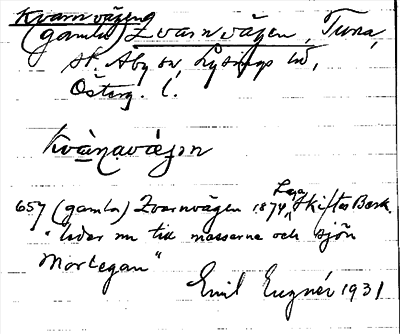 Kvarnvägen
(gamla) Qvarnvägen, Tuna,
st. Åby sn, Lysings hd,
Österg. l.
kvànavägɩn
657 (gamla) Qvarnvägen 1874 Laga Skiftes Besk.
"leder nu till mossarne och sjön
Mörtegan"
Emil Eugnér 1931